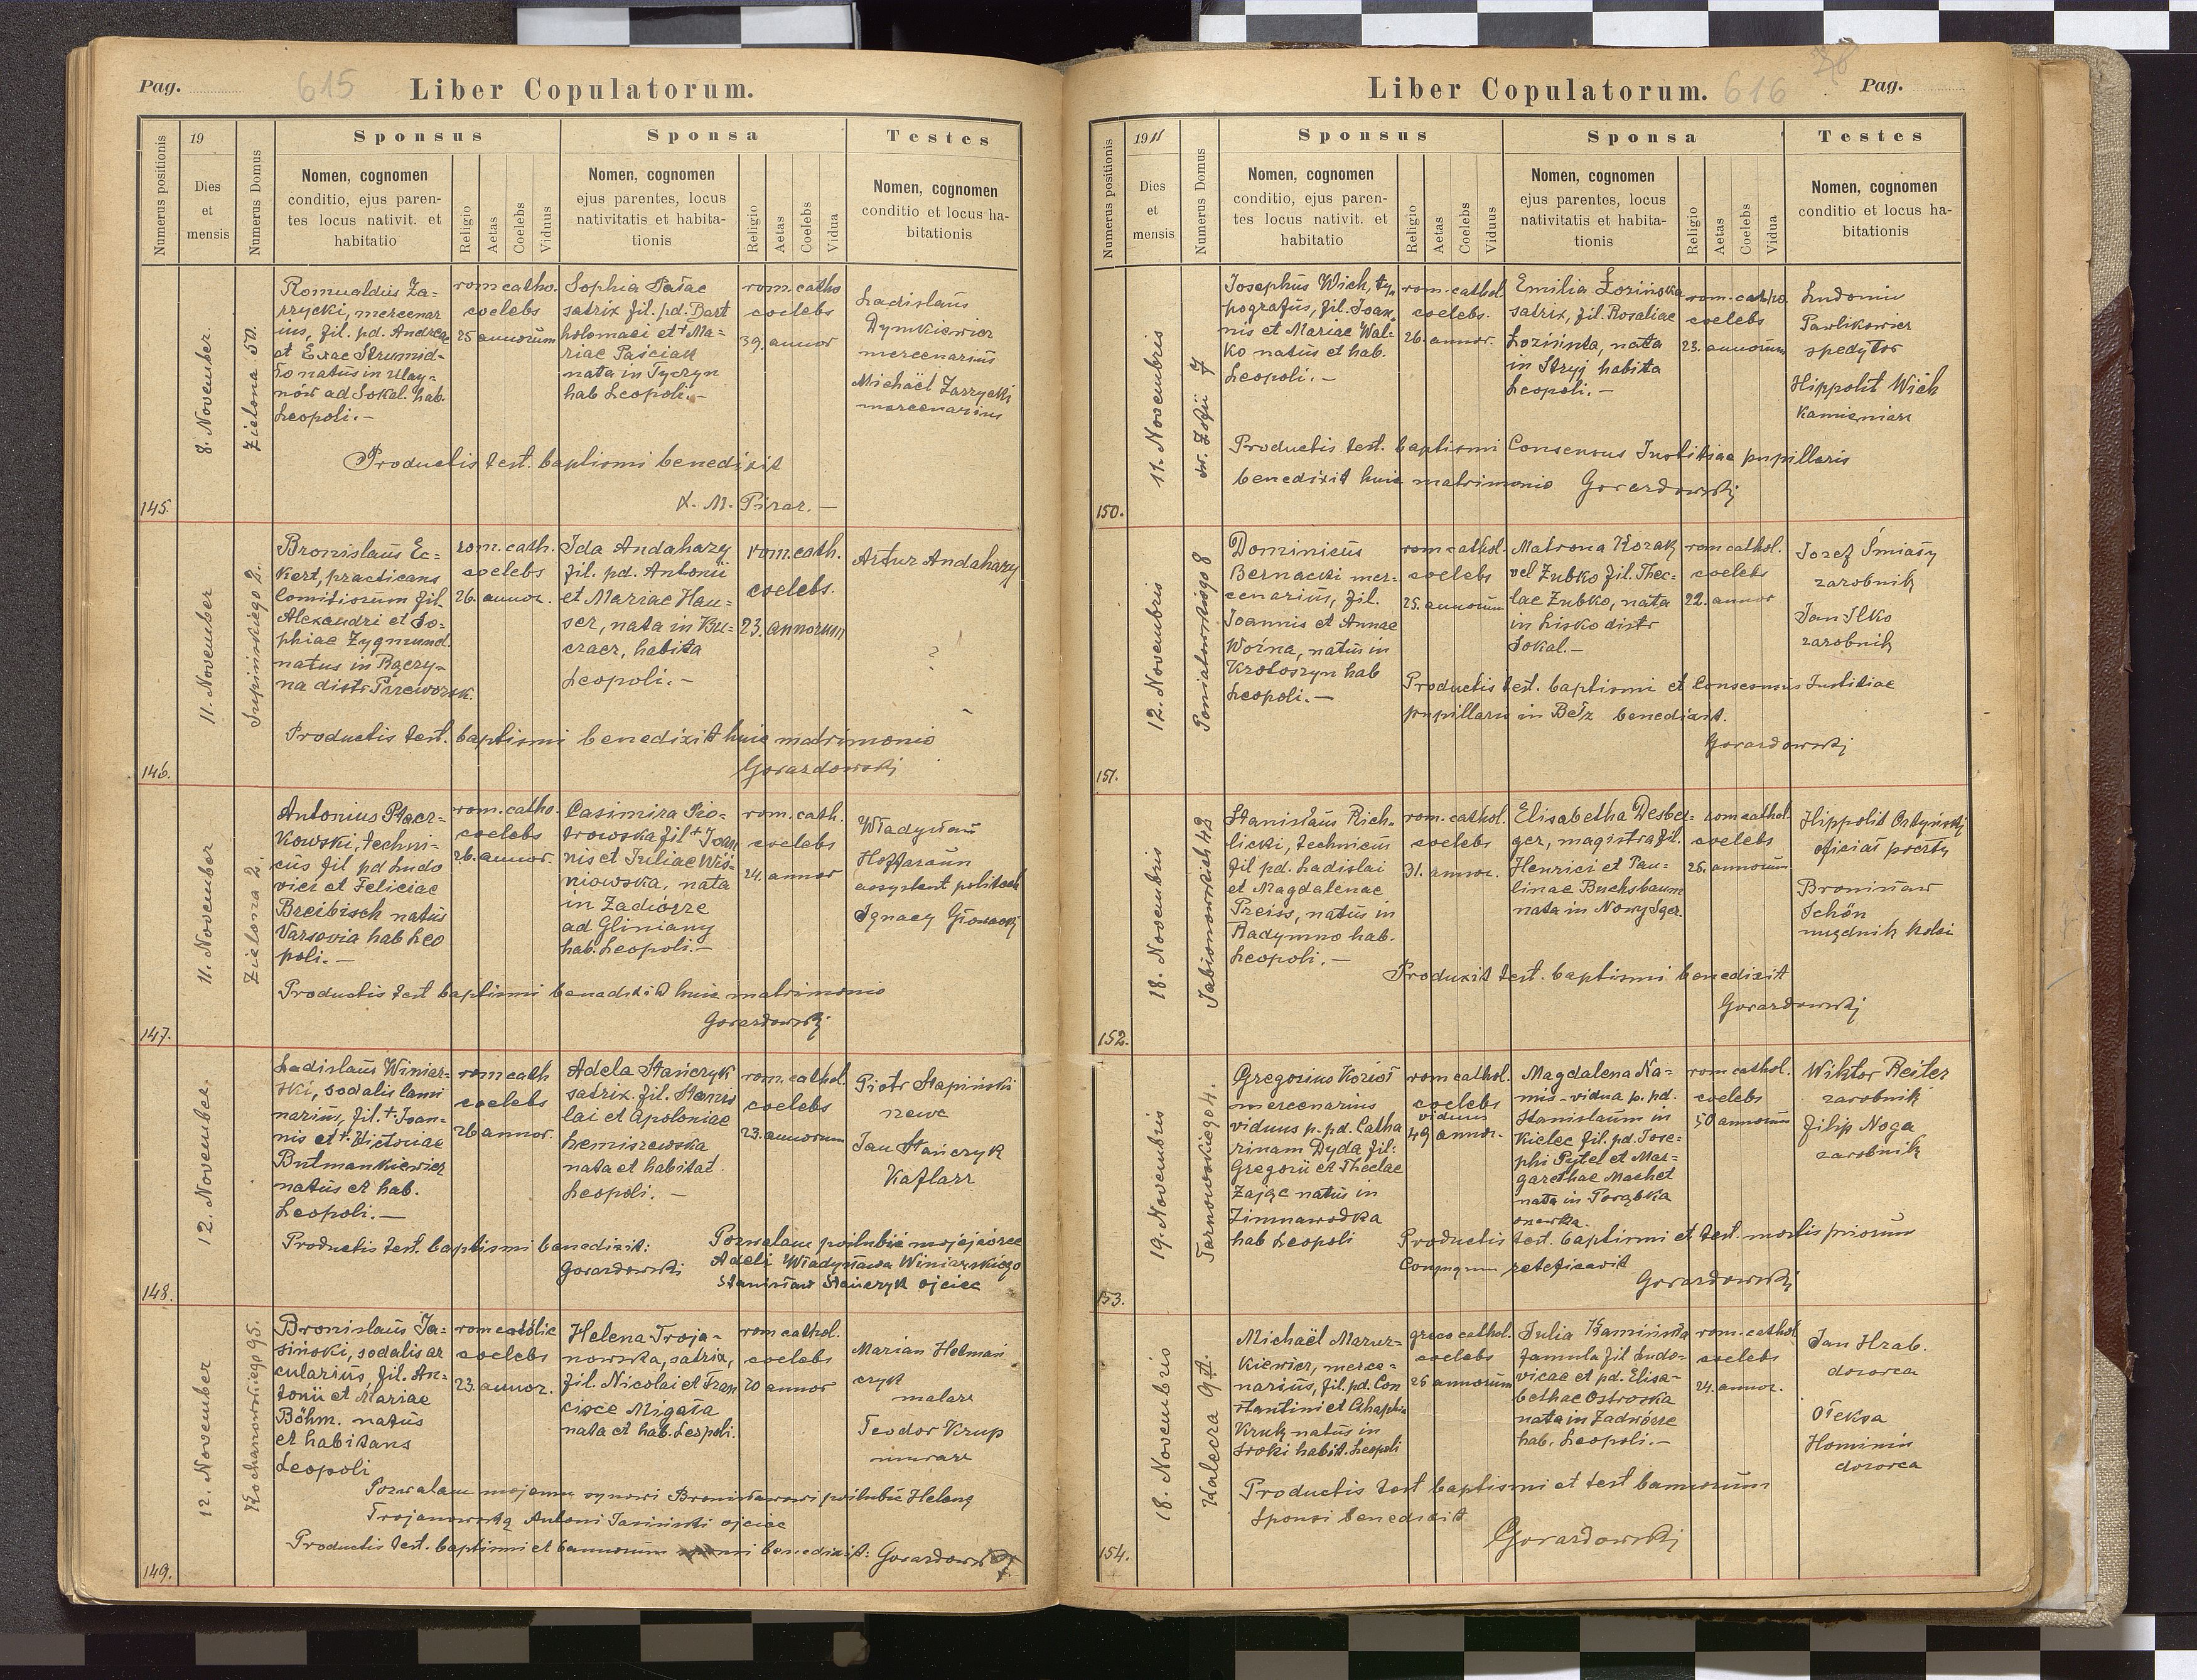 Pag.
615
Liber Copulatorum.
Numerus positionis
19
Dies
et
mensis
Numerus Domus
Sponsus
Nomen, cognomen
conditio, ejus paren-
tes locus nativit. et
habitatio
Religio
Aetas
Coelebs
Viduus
Sponsa
Nomen, cognomen
ejus parentes, locus
nativitatis et habita-
tionis
Religio
Aetas
Coelebs
Vidua
Testes
Nomen, cognomen
conditio et locus ha-
bitationis
145.
8. November
Zielona 50.
Romualdus Za-
rzycki, mercenar
ius, fil. pd. Andreae
et Evae Strumid-
ło natus in Ulay-
nów ad Sokal. hab.
Leopoli.-
rom catho.
coelebs
25 annorum
Sophia Pasac
satrix fil. pd. Bart
holomaei et + Ma-
riae Paściak
nata in Tyczyn
hab Leopoli.-
rom. catho
coelebs
39. annor
Ladislaus
Dymkiewicz
mercenarius
Michaël Zarzycki
mercenarius
Productis test. baptismi benedixit
146.
11. November
Supinskiego 2.
Bronislaus Ec-
kert, practicans
Comitiorum fil.
Alexandri et So-
phiae Zygmund.
natus in Rączy-
na distr Przeworsk.
rom. cath.
coelebs
26. annor.
Ida Andahazy
fil. pd. Antonii
et Mariae Hau-
ser, nata in Ku-
czacz, habita
Leopoli.-
rom. cath.
coelebs.
23. annorum
Artur Andahazy
?
Productis test. baptismi benedixit huic matrimonio
Gorazdowski
147.
11. November
Zielona 2.
Antonius Ptacz-
kowski, techni-
cus fil pd Ludo
vici et Feliciae
Breibisch natus
Varsovia hab Leo
poli.-
rom. catho.
coelebs
26. annor.
Casimira Pio-
trowska fil + Joan
nis et Juliae Wiś-
niowska, nata
in Zadwórze
ad Gliniany
hab. Leopoli.-
rom. cath.
coelebs
24. annor
Władysław
Hoffmann
assystent politech
Ignacy
Productis test baptismi benedixit huic matrimonio
Gorazdowski
148.
12. November.
Ladislaus Winiar-
ski, sodalis lami
narius, fil. + Joan-
nis et + Victoriae
Butmankiewicz
natus et hab.
Leopoli.-
rom cath
coelebs
26 annor.
Adela Stańczyk
satrix. fil. Stanis
lai et Apoloniae
Lemiszewska
nata et habitat.
Leopoli.-
rom. cathol.
coelebs
23. annorum
Piotr Stapiński
Jan Stańczyk
Kaflarz
Productis test. baptismi benedixit:
Gorazdowski
Pozwalam poślubić mojej córce
Adeli Władysława Winiarskiego
Stanisław Stańczyk ojciec
149.
12. November
Kochanowskiego 95.
Bronislaus Ja-
siński, sodalis ar
cularius, fil. An-
tonii et Mariae
Böhm. natus
et habitans
Leopoli
rom catolic
coelebs
23. annor.
Helena Troja-
nowska, satrix,
fil. Nicolai et Fran
cisce Migała
nata et hab. Leopoli.
rom cathol.
coelebs
20 annor
Marian Helman
czyk
malarz
Teodor Krup
murarz
Pozwalam mojemu synowi Bronisławowi poślubić Helenę
Trojanowską Antoni Jasiński ojciec
Productis test. baptismi et bannorum benedixit: Gorazdowski
Liber Copulatorum.
616
Pag.
Numerus positionis
1911
Dies
et
mensis
Numerus Domus
Sponsus
Nomen, cognomen
conditio, ejus paren-
tes locus nativit. et
habitatio
Religio
Aetas
Coelebs
Viduus
Sponsa
Nomen, cognomen
ejus parentes, locus
nativitatis et habita-
tionis
Religio
Aetas
Coelebs
Vidua
Testes
Nomen, cognomen
conditio et locus ha-
bitationis
150.
11. Novembris
św. Zofii 7
Josephus Wich, ty-
pografus, fil. Joan-
nis et Mariae Wal-
ko natus et hab.
Leopoli.-
rom. cathol
coelebs.
26. annor.
Emilia Łozińska
satrix, fil. Rosaliae
Łozińska, nata
in Stryj habita
Leopoli.-
rom. catho.
coelebs
23. annorum
Ludomir
Pawlikowicz
spedytor
Hippolit Wich
kamieniarz
Productis test. baptismi Consensus Justitiae pupillaris
benedixit huic matrimonio Gorazdowski
151.
12. Novembris
Poniatowskiego 8
Dominicus
Bernacki mer-
cenarius, fil.
Joannis et Annae
Woźna, natus in
Krotoszyn hab
Leopoli.-
rom cathol.
coelebs
25. annorum
Matrona Kozak
vel Zubko fil. Thec-
lae Zubko, nata
in Lisko distr
Sokal.-
rom cathol.
coelebs
22. annor
Jozef Śmiały
zarobnik
Jan Ilko
zarobnik
Productis test. baptismi et Consensus Justitiae
pupillaru in Bełz benedixit.
Gorazdowski
152.
18. Novembris
Jabłonowskich 42
Stanislaus Rich-
licki, technicus
fil pd. Ladislai
et Magdalenae
Preiss, natus in
Radymno hab.
Leopoli.-
rom. cathol.
coelebs
31. annor.
Elisabetha Desber-
ger, magistra fil.
Henrici et Pau-
linae Buchsbaum
nata in Nowy Sącz.
rom cathol.
coelebs
26. annorum
Hippolit
oficiał poczty
Bronisław
Schön
urzędnik kolei
Produxit test. baptismi benedixit
Gorazdowski
153.
19. Novembris
Tarnowskiego 4.
Gregorius Kozioł
mercenarius
viduus p. pd. Catha
rinam Dyda fil.
Gregorii et Theclae
Zając natus in
Zimnawodka
hab Leopoli
rom cathol.
coelebs
viduus
49 annor.
Magdalena Ka-
mis - vidua p. pd.
Stanislaum in
Kielec fil. pd. Jose-
phi Pytel et Mar-
garethae Machet
nata in Porąbka
rom cathol.
coelebs
50 annorum
Wiktor Reiter
zarobnik
Filip Noga
zarobnik
Productis test. baptismi et test. mortis priorum
Conjugum
Gorazdowski
154.
18. Novembris
Kalecza 9 A.
Michaël Mazur-
kiewicz, merce-
narius, fil. pd. Con
stantini et Ahaphia
Kruk natus in
Sroki habit. Leopoli
greco cathol.
coelebs
26 annorum
Julia Kamińska
famula fil Ludo-
vicae et pd. Elisa-
bethae Ostroska
nata in Zadwórze
hab. Leopoli.-
rom. cathol
coelebs
24. annor.
Jan Hrab.
dozorca
Ołeksa
Hominin
dozorca
Productis test baptismi et test bannorum
Sponsi benedixit
Gorazdowski